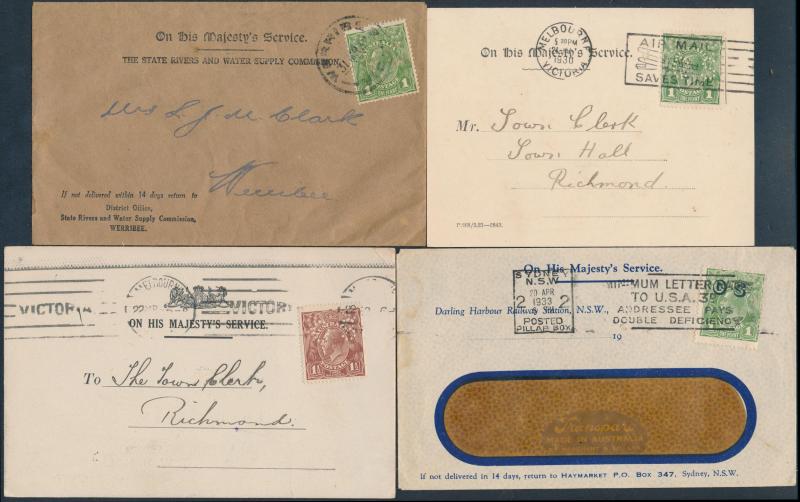 On His Majesty's Service.
THE STATE RIVERS AND WATER SUPPLY COMMISSION
WERRIBEE
1
Mrs L. J. M. Clark
Werribee
If not delivered within 14 days return to
District Office,
State Rivers and Water Supply Commission,
WERRIBEE.
On His Majesty's Service.
MELBOURNE
1930
VICTORIA
AIR MAIL
SAVES TIME
1 1
Mr. Town Clerk
Town Hall
Richmond.
VICTORIA
MELBOURNE
VICTORIA
ON HIS MAJESTY'S SERVICE.
POSTAGE
To The Town Clerk,
Richmond.
On His Majesty's Service.
SYDNEY
N.S.W
20 APR
1933
2 2
POSTED
PILLAR BOX
MINIMUM LETTER RATE
TO U.S.A. 3D
ADDRESSEE PAYS
DOUBLE DEFICIENCY
OS
1
Darling Harbour Railway Station, N.S.W.,
19
Transpar
MADE IN AUSTRALIA
If not delivered in 14 days, return to HAYMARKET P.O. BOX 347, Sydney, N.S.W.